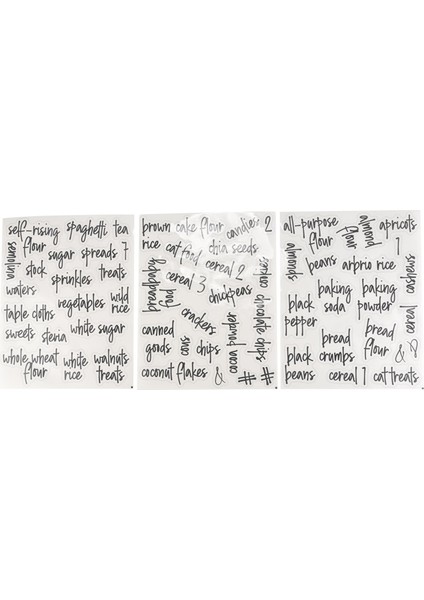 self-rising spaghetti tea
flour sugar spreads 7
stock sprinkles treats
waters
vegetables wild
table cloths rice
sweets steria white sugar
whole wheat white walnuts
flour rice treats
brown cake flour candies 2
rice cat food chia seeds
cereal 2
cookies
breadbaby
food
cereal 3 chickpeas
chocolate chips
crackers
canned
goods cous chips
cocoa powder
coconut flakes & # #
all-purpose almond apricots
flour flour 1
almonds
beans arbrio rice
cashews
baking baking
black soda powder
pepper
cereal
bread
bread flour & &
black crumbs
beans cereal 1 cat treats